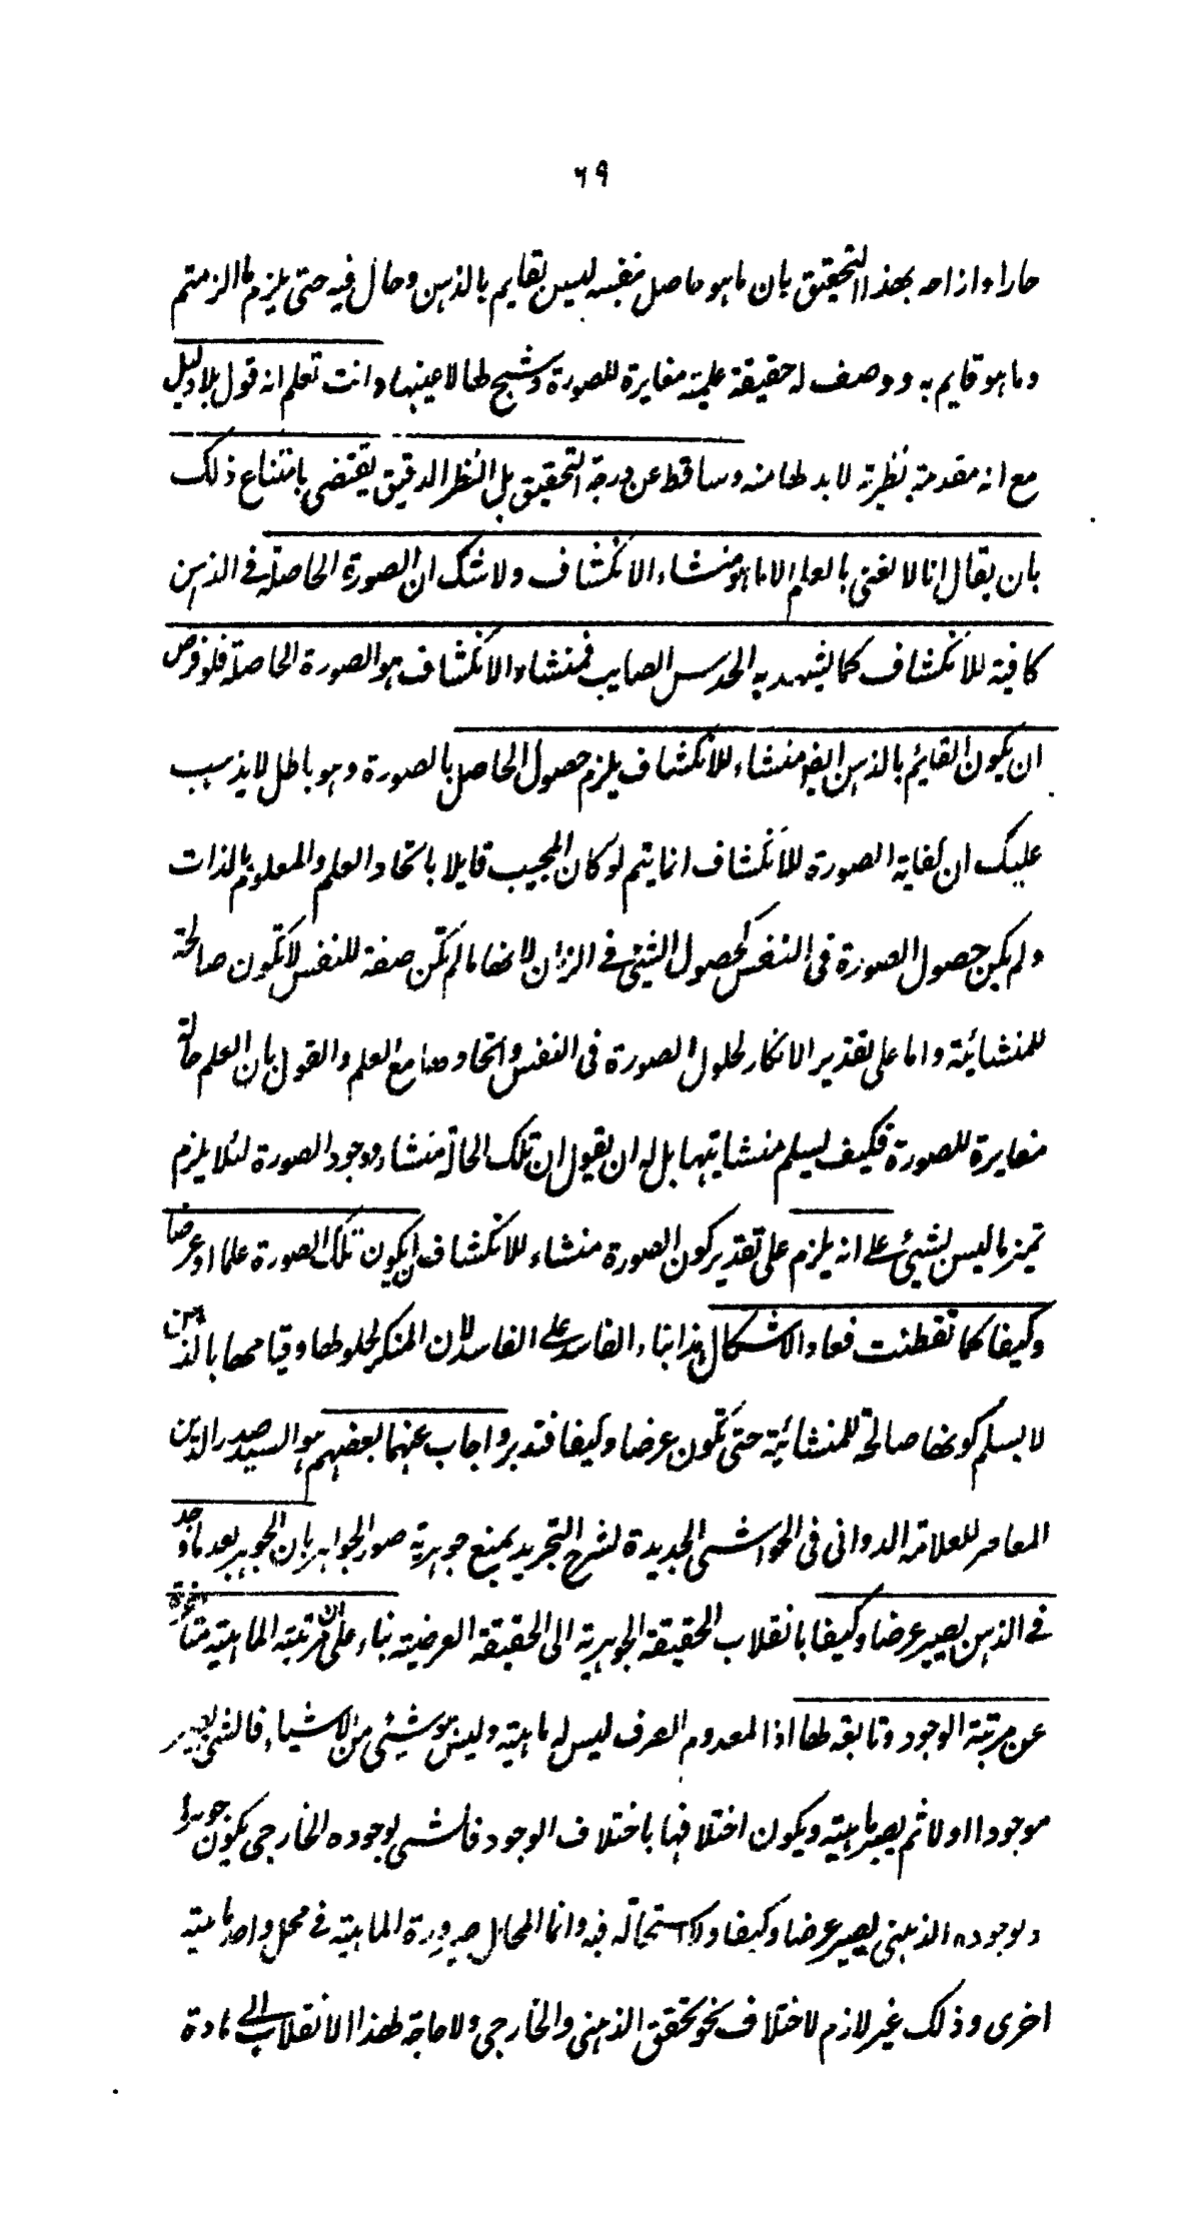 ٦٩
حارا وازاحه بهذا التحقيق بان ماهو حاصل بنفسه ليس بقايم بالذهن وحال فيه حتى يلزم ما الزمتم
وماهو قايم به ووصف له حقيقة علمية مغايرة للصورة وشبح لها لا عينها وانت تعلم انه قول بلا دليل
مع انه مقدمة نظرية لا بد لها منه وساقط عن درجة التحقيق بل النظر الدقيق يقتضى بامتناع ذلك
بان يقال انا لا نعنى بالعلم الا ما هو منشاء الانكشاف ولا شك ان الصورة الحاصلة فى الذهن
كافية للانكشاف كما يشهد به الحدس الصايب فمنشاء الانكشاف هو الصورة الحاصلة فلو فرض
ان يكون القائم بالذهن ايضا منشاء للانكشاف يلزم حصول الحاصل بالصورة وهو باطل لا يذهب
عليك ان كفاية الصورة للانكشاف انما يتم لو كان المجيب قايلا باتحاد العلم والمعلوم بالذات
ولم يكن حصول الصورة فى النفس كحصول الشئ فى الزمان لانها ما لم تكن صفة للنفس لا تكون صالحة
للمنشائية واما على تقدير الانكار لحلول الصورة فى النفس واتحادها مع العلم والقول بان العلم حالة
مغايرة للصورة فكيف يسلم منشايتها بل له ان يقول ان تلك الحالة منشاء ووجود الصورة لئلا يلزم
تميز ما ليس بشئ على انه يلزم على تقدير كون الصورة منشاء للانكشاف ان يكون تلك الصورة علما او عرضا
وكيفا كما تفطنت فعاد الاشكال هذا بناء الفاسد على الفاسد لان المنكر لحلولها وقيامها بالذهن
لا يسلم كونها صالحة للمنشائية حتى تكون عرضا وكيفا فتدبر واجاب عنهما بعضهم هو السيد صدر الدين
المعاصر للعلامة الدوانى فى الحواشى الجديدة لشرح التجريد بمنع جوهرية صور الجواهر بان الجوهر بعد ما وجد
فى الذهن يصير عرضا وكيفا بانقلاب الحقيقة الجوهرية الى الحقيقة العرضية بناء على ان مرتبة الماهية متأخرة
عن مرتبة الوجود وتابعة لها اذا المعدوم الصرف ليس له ماهية وليس هو شيئى من الاشياء فالشى يصير
موجودا اولا ثم يصير ماهية ويكون اختلافها باختلاف الوجود فالشى بوجوده الخارجى يكون جوهرا
وبوجوده الذهنى يصير عرضا وكيفا ولا استحالة فيه وانما المحال صيرورة الماهية فى محل واحد ماهية
اخرى وذلك غير لازم لاختلاف نحو تحقق الذهنى والخارجى ولا حاجة لهذا الانقلاب الى مادة